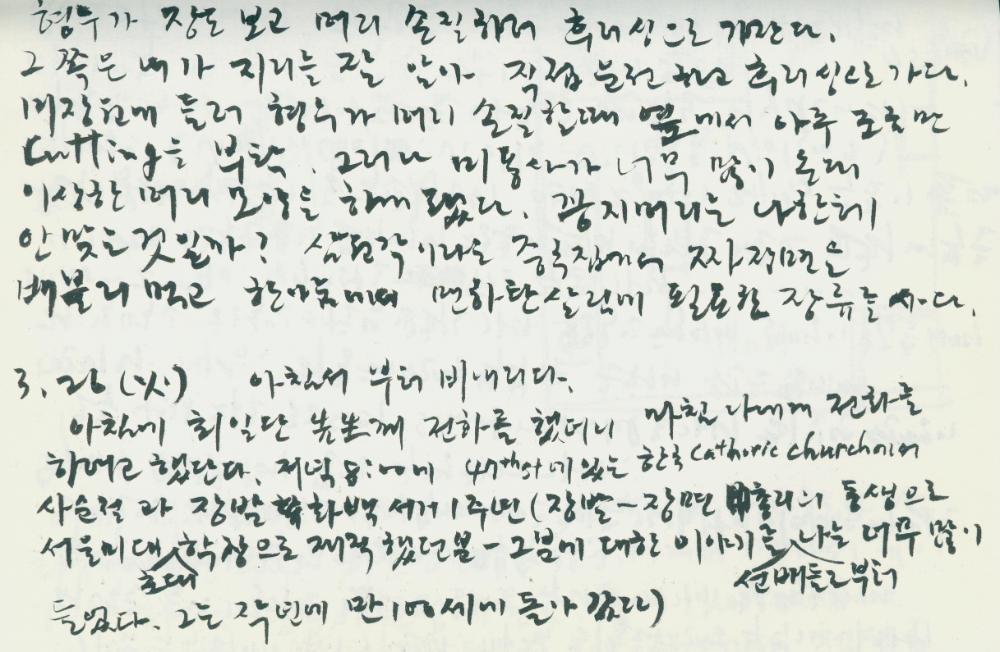 형수가 장도 보고 머리 손질하러 후러싱으로 가잔다.
그쪽은 내가 지리를 잘 알아 직접 운전하고 후러싱으로 가다.
미장원에 들러 형수가 머리 손질할때 옆에서 아주 조금만
Cutting을 부탁. 그러나 미용사가 너무 많이 잘라
이상한 머리 모양을 해 놨다. 꽁지머리는 나한테
안 맞는 것일까? 삼원각이라는 중국집에서 짜장면을
배불리 먹고 한아름에서 맨하탄 살림에 필요한 장류를 사다.
3. 23 (火) 아침서 부터 비내리다.
아침에 최일단 선생께 전화를 했더니 마침 나에게 전화를
하려고 했단다. 저녁 8:00에 47th st에 있는 한국 Catholic church에서
사순절과 장발 화백 서거 1주년 (장발 - 장면 총리의 동생으로
서울미대 초대 학장으로 재직했던 분 - 그분에 대한 이야기를 나는 선배들로부터 너무 많이
들었다. 그는 작년에 만 100세에 돌아 갔다)